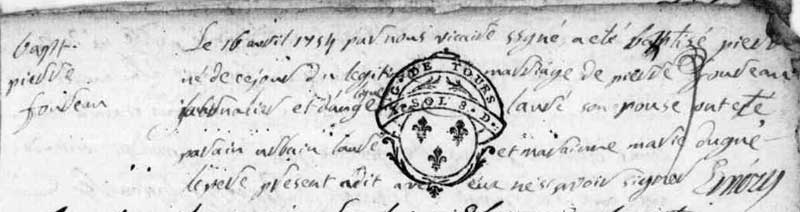 bapt.
pierre
foudeau
Le 16 avril 1754 par nous vicaire sygné, a eté baptisé pierre
né de ce jour du legit mariage de pierre foudeau
et d'ange lauré son epouse ont eté
parain urbain lauré et maraine marie
le pere present a dit avec eux ne sçavoir signer Emery
G. DE TOURS
SOL 8. D.